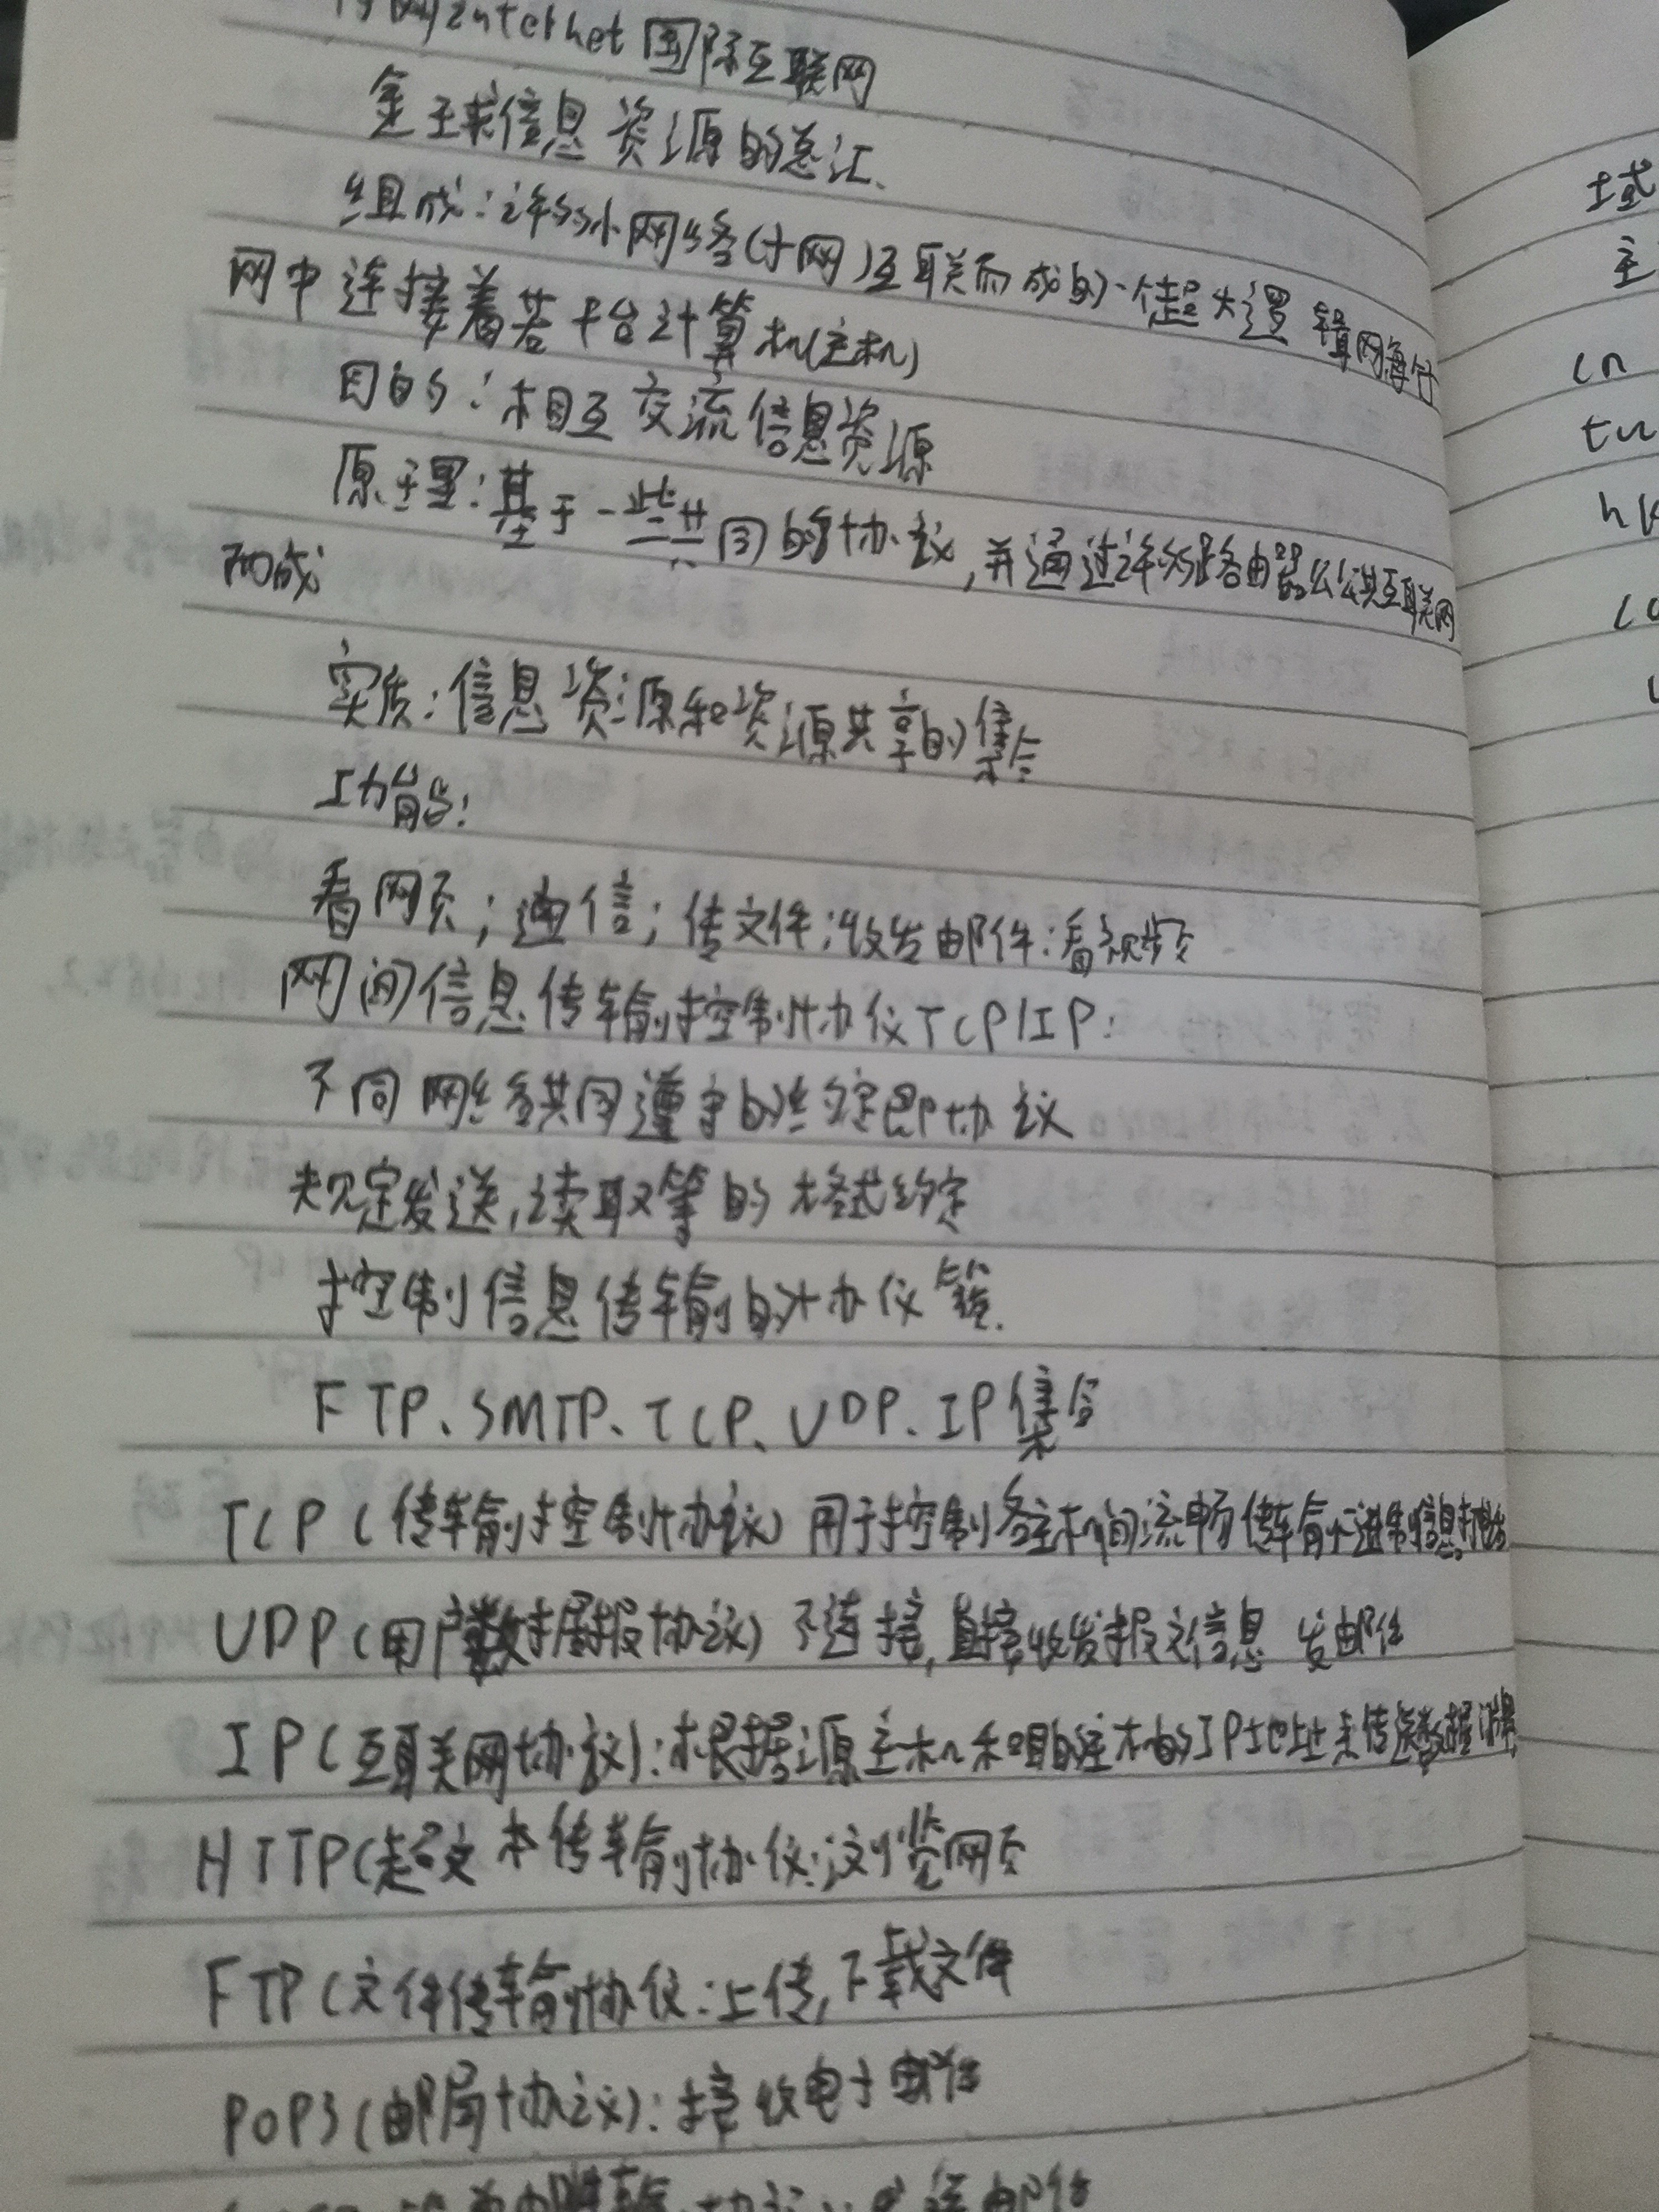 Internet 国际互联网
全球信息资源的总汇.
组成:许多小网络(子网)互联而成的一个超大逻辑网每个
网中连接着若干台计算机(主机)
目的:相互交流信息资源
原理:基于一些共同的协议,并通过许多路由器公共互联网
而成
实质:信息资源和资源共享的集合
功能:
看网页;通信;传文件;收发邮件;看视频
网间信息传输控制协仪TCP/IP:
不同网络共同遵守的约定即协议
规定发送,读取等的格式约定
控制信息传输的协仪簇.
FTP、SMTP、TCP、UDP、IP集合
TCP(传输控制协议)用于控制各主机间流畅传输二进制信息
UDP(用户数据报协议)不连接,直接收发报文信息 发邮件
IP(互联网协议):根据源主机和目的主机的IP地址来传送数据
HTTP(超文本传输协仪:浏览网页
FTP(文件传输协仪:上传,下载文件
POP3(邮局协议):接收电子邮件
域
主
cn